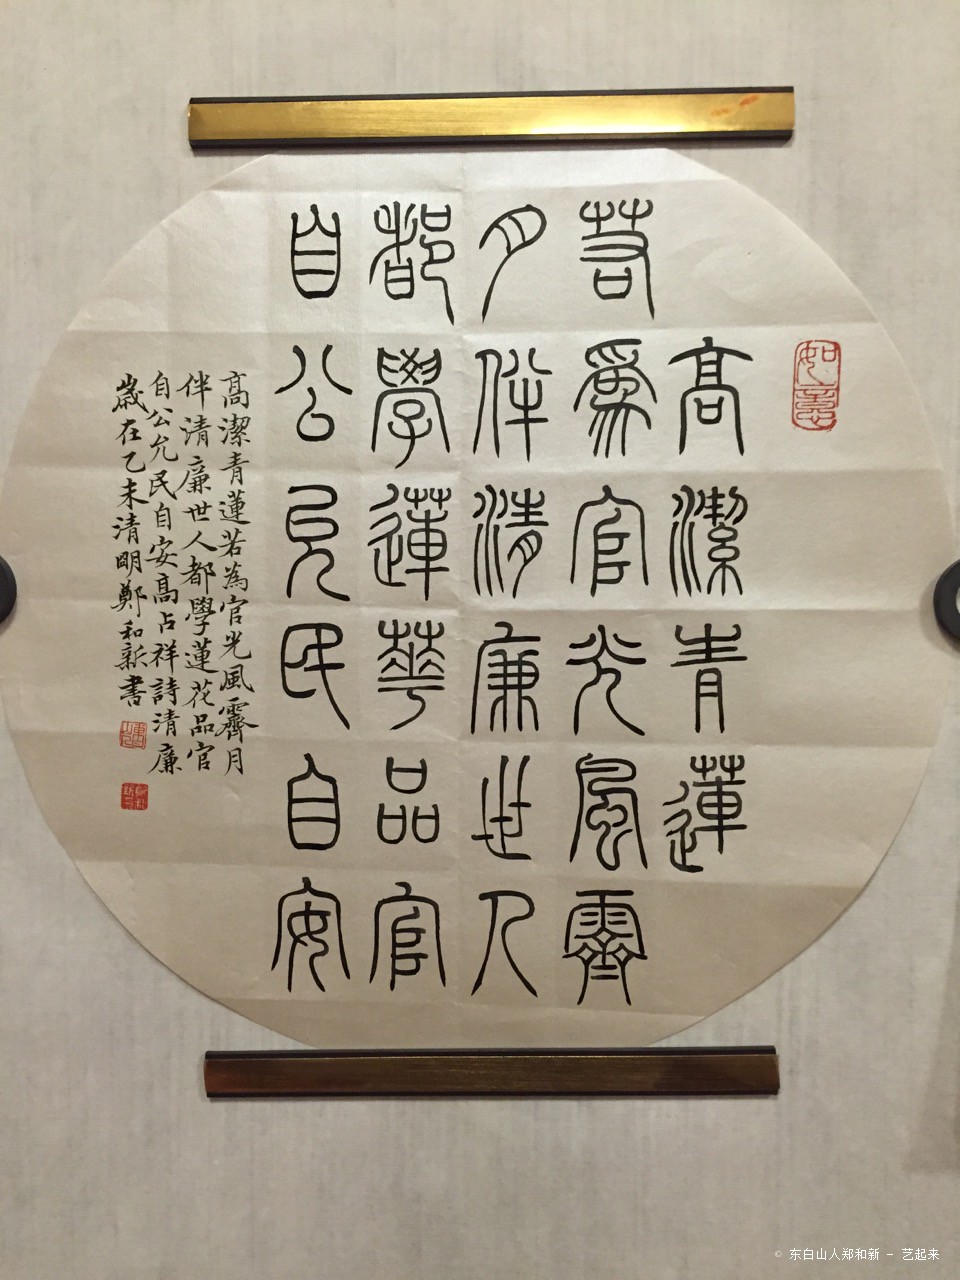 高潔青蓮
若為官光風霽
月伴清廉世人
都學蓮華品官
自公允民自安
如意
高潔青蓮若為官光風霽月
伴清廉世人都學蓮花品官
自公允民自安高占祥詩清廉
歲在乙未清明鄭和新書
© 东白山人郑和新 - 艺起来